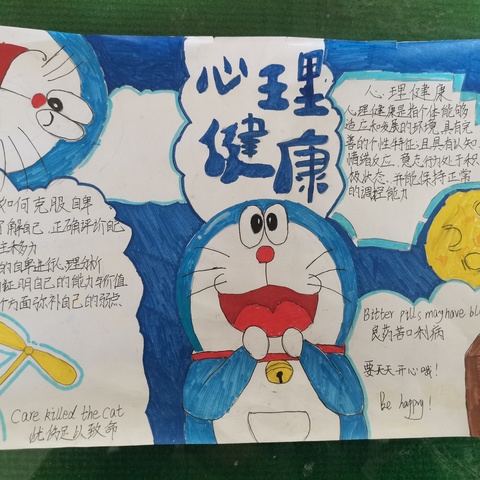 心理
健康
心理健康
心理健康是指个体能够
适应和发展的环境,具有完
善的个性特征;且具有认知
情绪反应,意志行为处于积
极状态,并能保持正常
的调控能力
如何克服自卑
了解自己,正确评价自己
的自卑进行心理分析
证明自己的能力与价值
个方面弥补自己的弱点
Bitter pills may have bl
良药苦口利病
要天天开心哦!
Be happy!
Care killed the cat
忧伤足以致命